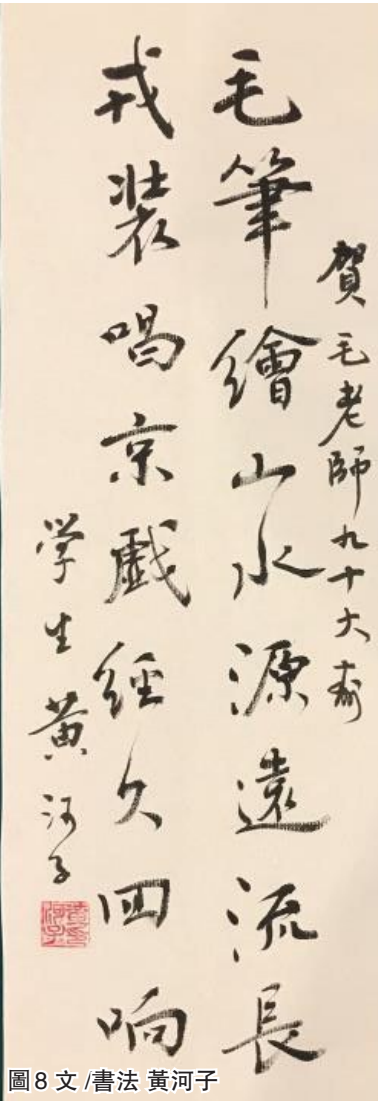 賀毛老師九十大壽
毛筆繪山水源遠流長
戎装唱京戲經久回响
学生黄河子
黄河子
圖8 文/書法 黃河子